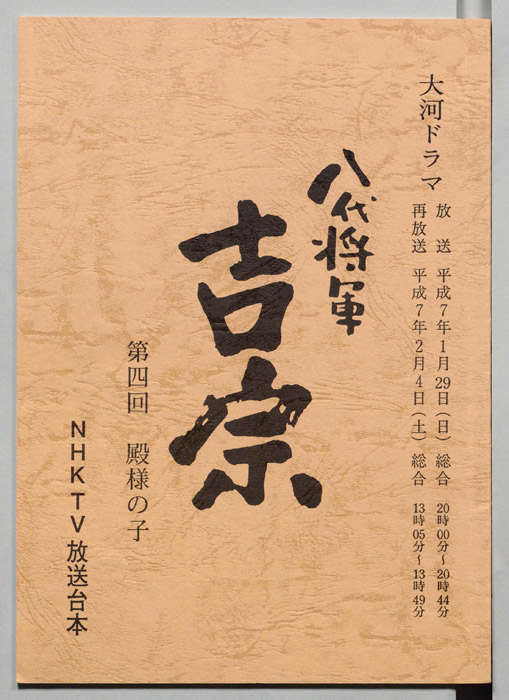 大河ドラマ
放送 平成7年1月29日(日) 総合 20時00分~20時44分
再放送 平成7年2月4日(土) 総合 13時05分~13時49分
八代将軍
吉宗
第四回 殿様の子
NHK TV 放送台本